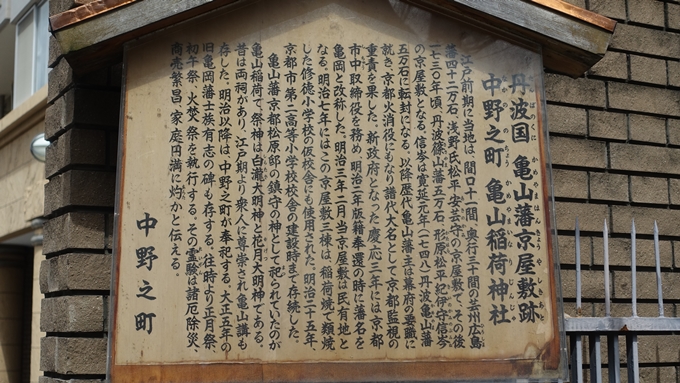 丹波国 亀山藩京屋敷跡
たんばくに かめやまはんきょうやしきあと
中野之町 亀山稲荷神社
なかのの ちょう かめやまいなりじんじゃ
江戸前期に当地は、間口十一間、奥行三十間の芸州広島
藩四十二万石、浅野氏松平安芸守の京屋敷で、その後
一七三〇年頃、丹波篠山藩五万石、形原松平紀伊守信岑
の京屋敷となる。信岑は寛延元年(一七四八)丹波亀山藩
五万石に転封になる。以降歴代亀山藩主は幕府の要職に
就き京都火消役にもなり譜代大名として京都監視の
重責を果した。新政府となった慶応三年には京都
市中取締役を務め、明治二年版籍奉還の時に藩名を
亀岡と改称した。明治三年二月当京屋敷は民有地と
なる。明治七年にはこの京屋敷三棟は、稲荷焼で類焼
した修徳小学校の仮校舎にも使用された。明治二十五年、
京都市第二高等小学校校舎の建設時まで存続した。
亀山藩京都松原邸の鎮守の神として祀られていたのが
亀山稲荷で、祭神は白瀧大明神と花月大明神である。
昔は両祠があり、江戸期より衆人に尊崇され亀山講も
存した。明治以降は、中野之町が奉祀する。大正五年の
旧亀岡藩士族有志の碑も存する。往時より正月祭、
初午祭、火焚祭を執行する。その霊験は諸厄除災、
商売繁昌、家庭円満に灼かと伝える。
中野之町